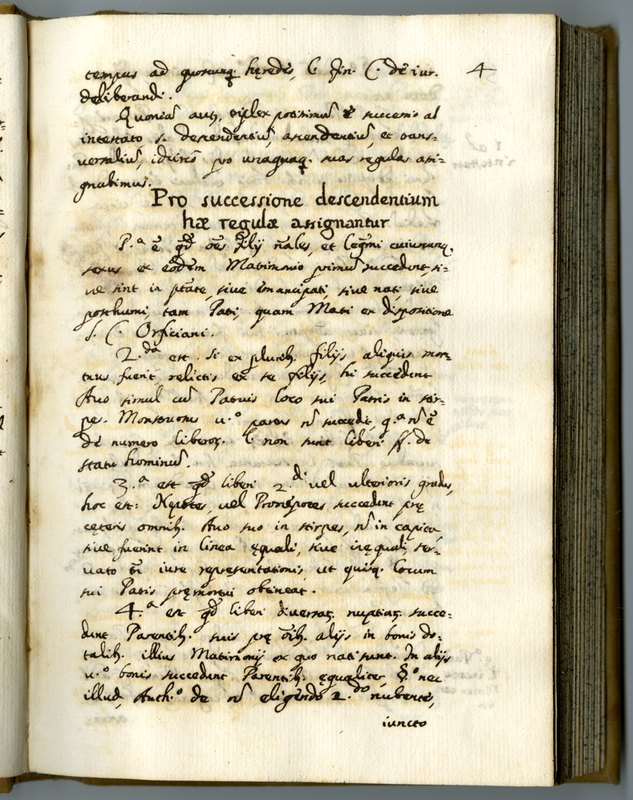 tempus ad quoscunq. hęredes, l. fin. C. de iur. 4
deliberandi.
Quoniã autẽ triplex potissimũ ẽ successio ab
intestato s. descendentiũ, ascendentiũ, et trans-
versaliũ, idcirco pro unaquaq. suas regulas assi-
gnabimus.
Pro successione descendentium
hæ regulæ assignantur
P.ª ẽ qđ oẽs filij ñales, et legmi cuiuscunq.
sexus ex eodem Matrimonio primũ succedunt, si-
ve sint in ptãte, sive emancipati, sive nati, sive
posthumi, tam Patri, quam Matri ex dispositione
S. C. Orficiani.
2.dª est. Si ex plurib. filijs aliquis mor-
tuus fuerit relictis ex se filijs, hi succedunt
Avo simul cũ Patruis loco sui Patris in stir-
pes. Monstruosus v.º partus ñ succedit, q.ª ñ ẽ
de numero liberor. l. non sunt liberi ff. de
statu hominũ.
3.ª est qđ liberi 2.di vel ulterioris gradus,
hoc est: Nepotes, vel Pronepotes succedunt prę
cęteris omnib. Avo suo in stirpes, ñ in capita,
sive fuerint in linea ęquali, sive inęquali, ser-
vato tñ iure representationis, ut quisq. locum
sui Patris pręmortui obtineat.
4.ª est qđ liberi diversar. nuptiar. succe-
dunt Parentib. suis prę oĩb. alijs in bonis do-
talib. illius Matrimonij ex quo nati sunt. In alijs
v.º bonis succedunt Parentib. ęqualiter,
illud, Auth.º de ñ eligendo 2.do nubente,
iuncto